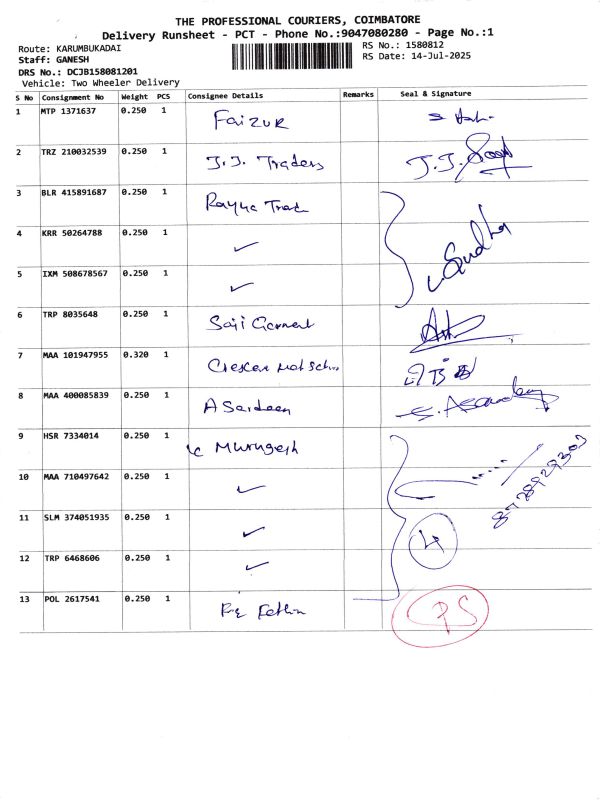 THE PROFESSIONAL COURIERS, COIMBATORE
Delivery Runsheet - PCT - Phone No.:9047080280 - Page No.:1
Route: KARUMBUKADAI RS No.: 1580812
Staff: GANESH RS Date: 14-Jul-2025
DRS No.: DCJB158081201
Vehicle: Two Wheeler Delivery
S No Consignment No Weight PCS Consignee Details Remarks Seal & Signature
1 MTP 1371637 0.250 1 Faizur
2 TRZ 210032539 0.250 1 J.J. Traders J.J.
3 BLR 415891687 0.250 1
4 KRR 50264788 0.250 1 ✓
5 IXM 508678567 0.250 1 ✓ Sudha
6 TRP 8035648 0.250 1
7 MAA 101947955 0.320 1
8 MAA 400085839 0.250 1
9 HSR 7334014 0.250 1 Murugesh
10 MAA 710497642 0.250 1 ✓
11 SLM 374051935 0.250 1 ✓ 4
12 TRP 6468606 0.250 1 ✓
13 POL 2617541 0.250 1 PS